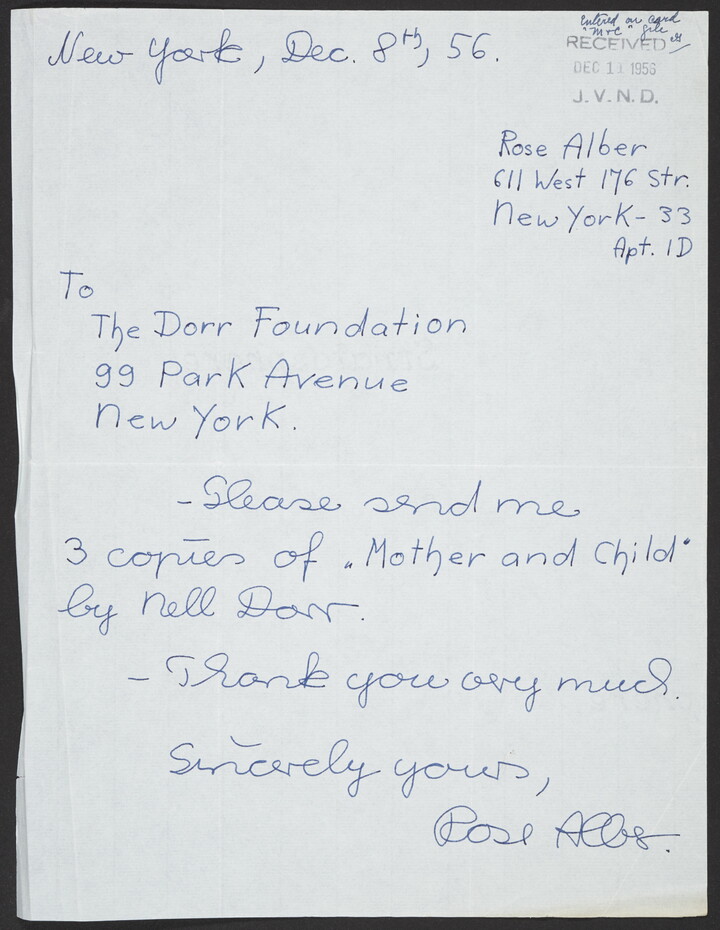 New York, Dec. 8th, 56.
entered on card
"M+C" file
RECEIVED
DEC 11 1956
J.V.N.D.
Rose Alber
611 West 176 Str.
New York - 33
Apt. 1D
To
The Dorr Foundation
99 Park Avenue
New York.
- Please send me
3 copies of „Mother and Child"
by Nell Dorr.
- Thank you very much.
Sincerely yours,
Rose Alber.